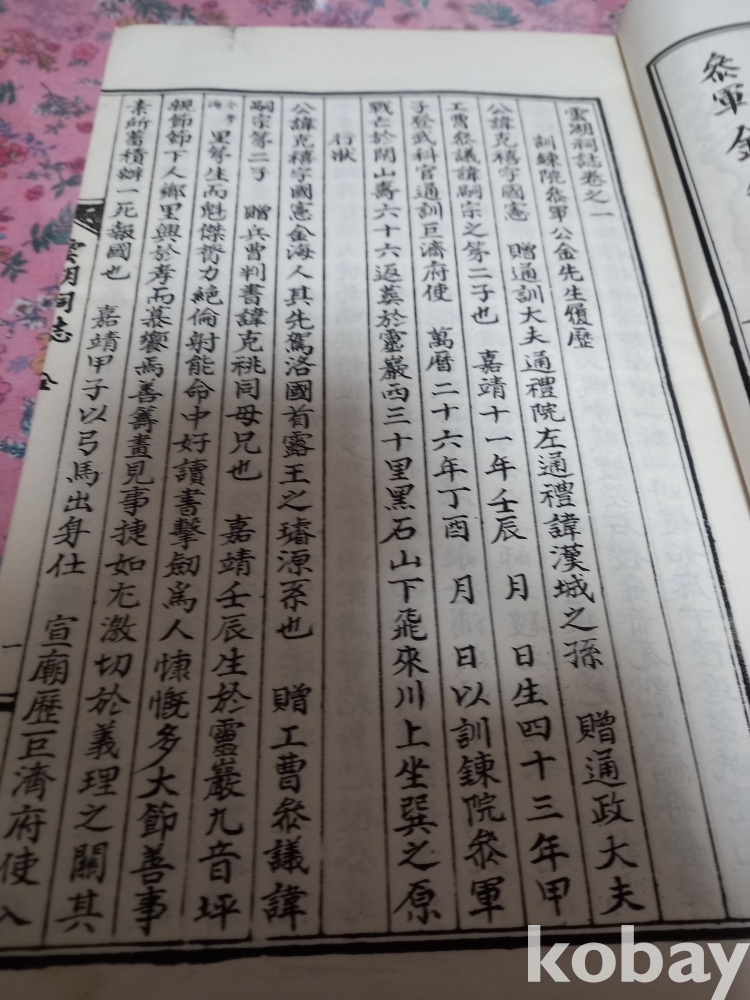 叅軍金
雲湖祠誌卷之一
訓練院叅軍公金先生履歷
公諱克禧字國憲 贈通訓大夫通禮院左通禮諱漢城之孫 贈通政大夫
工曹叅議諱嗣宗之第二子也 嘉靖十一年壬辰 月 日生四十三年甲
子登武科官通訓巨濟府使 萬曆二十六年丁酉 月 日以訓鍊院叅軍
戰亡於閑山壽六十六返葬於靈巖西三十里黑石山下飛來川上坐巽之原
行狀
公諱克禧字國憲金海人其先駕洛國首露王之璿源系也 贈工曹叅議諱
嗣宗第二子 贈兵曹判書諱克祧同母兄也 嘉靖壬辰生於靈巖九音坪
里第生而魁傑膂力絶倫射能命中好讀書擊劒爲人慷慨多大節善事
親節節下人鄕里興於孝而慕嚮焉善籌畫見事捷如尤激切於義理之關其
素所蓄積辦一死報國也 嘉靖甲子以弓馬出身仕 宣廟歷巨濟府使入
雲湖祠志 全
一
kobay